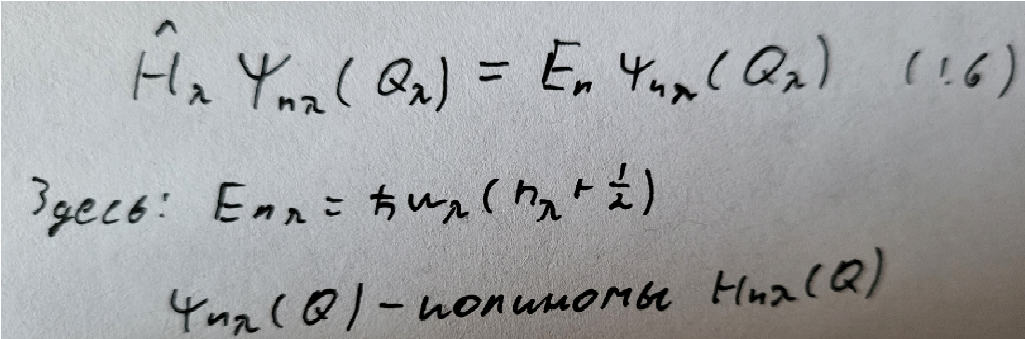 Ĥ_λ Ψ_{nλ}(Q_λ) = E_n Ψ_{nλ}(Q_λ) (1.6)
Здесь: E_{nλ} = ħω_λ(n_λ + 1/2)
Ψ_{nλ}(Q) – полиномы H_{nλ}(Q)